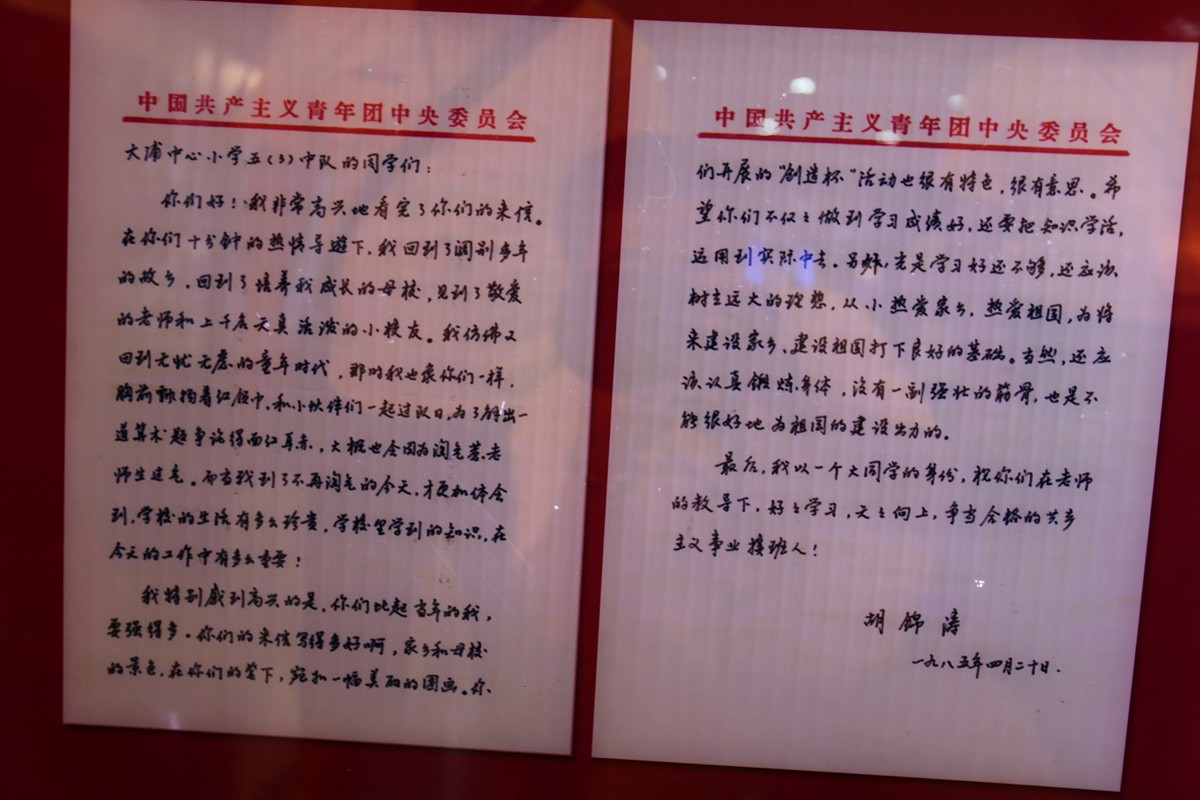 中国共产主义青年团中央委员会
大浦中心小学五(3)中队的同学们:
你们好!我非常高兴地看完了你们的来信。
在你们十分钟的热情导遊下,我回到了阔别多年
的故乡,回到了培养我成长的母校,见到了敬爱
的老师和上千名天真活泼的小校友。我仿佛又
回到无忧无虑的童年时代,那时我也象你们一样,
胸前飘拂着红领巾,和小伙伴们一起过队日,为了解出一
道算术题争论得面红耳赤,大概也会因为淘气惹老
师生过气。而当我到了不再淘气的今天,才更加体会
到,学校的生活有多么珍贵,学校里学到的知识,在
今天的工作中有多么重要!
我特别感到高兴的是,你们比起当年的我,
要强得多。你们的来信写得多好啊,家乡和母校
的景色,在你们的笔下,宛如一幅美丽的图画。你
中国共产主义青年团中央委员会
们开展的"创造杯"活动也很有特色,很有意思。希
望你们不仅仅做到学习成绩好,还要把知识学活,
运用到实际中去。另外,光是学习好还不够,还应该
树立远大的理想,从小热爱家乡、热爱祖国,为将
来建设家乡、建设祖国打下良好的基础。当然,还应
该认真锻炼身体,没有一副强壮的筋骨,也是不
能很好地为祖国的建设出力的。
最后,我以一个大同学的身份,祝你们在老师
的教导下,好好学习,天天向上,争当合格的共产
主义事业接班人!
胡锦涛
一九八五年四月二十日.